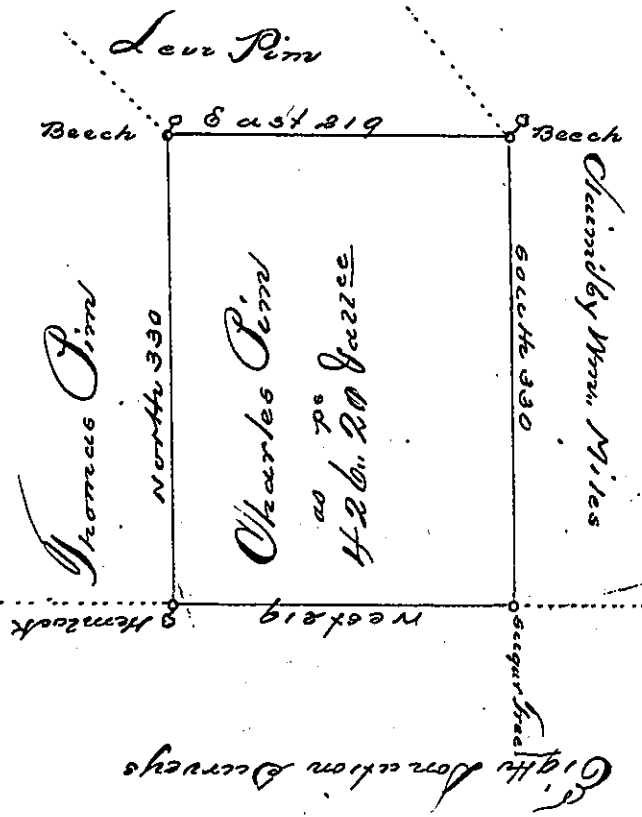 Levi Pim
Beech
East 219
Beech
Thomas Pim
North 330
Charles Pim
as ps
426.. 20 & allce
South 330
Claimd by Wm.. Miles
Hemlock
West 219
Sugar Tree
Eight Donation Surveys